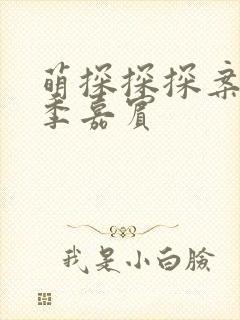 萌探探探案
季嘉宾
我是小白臉